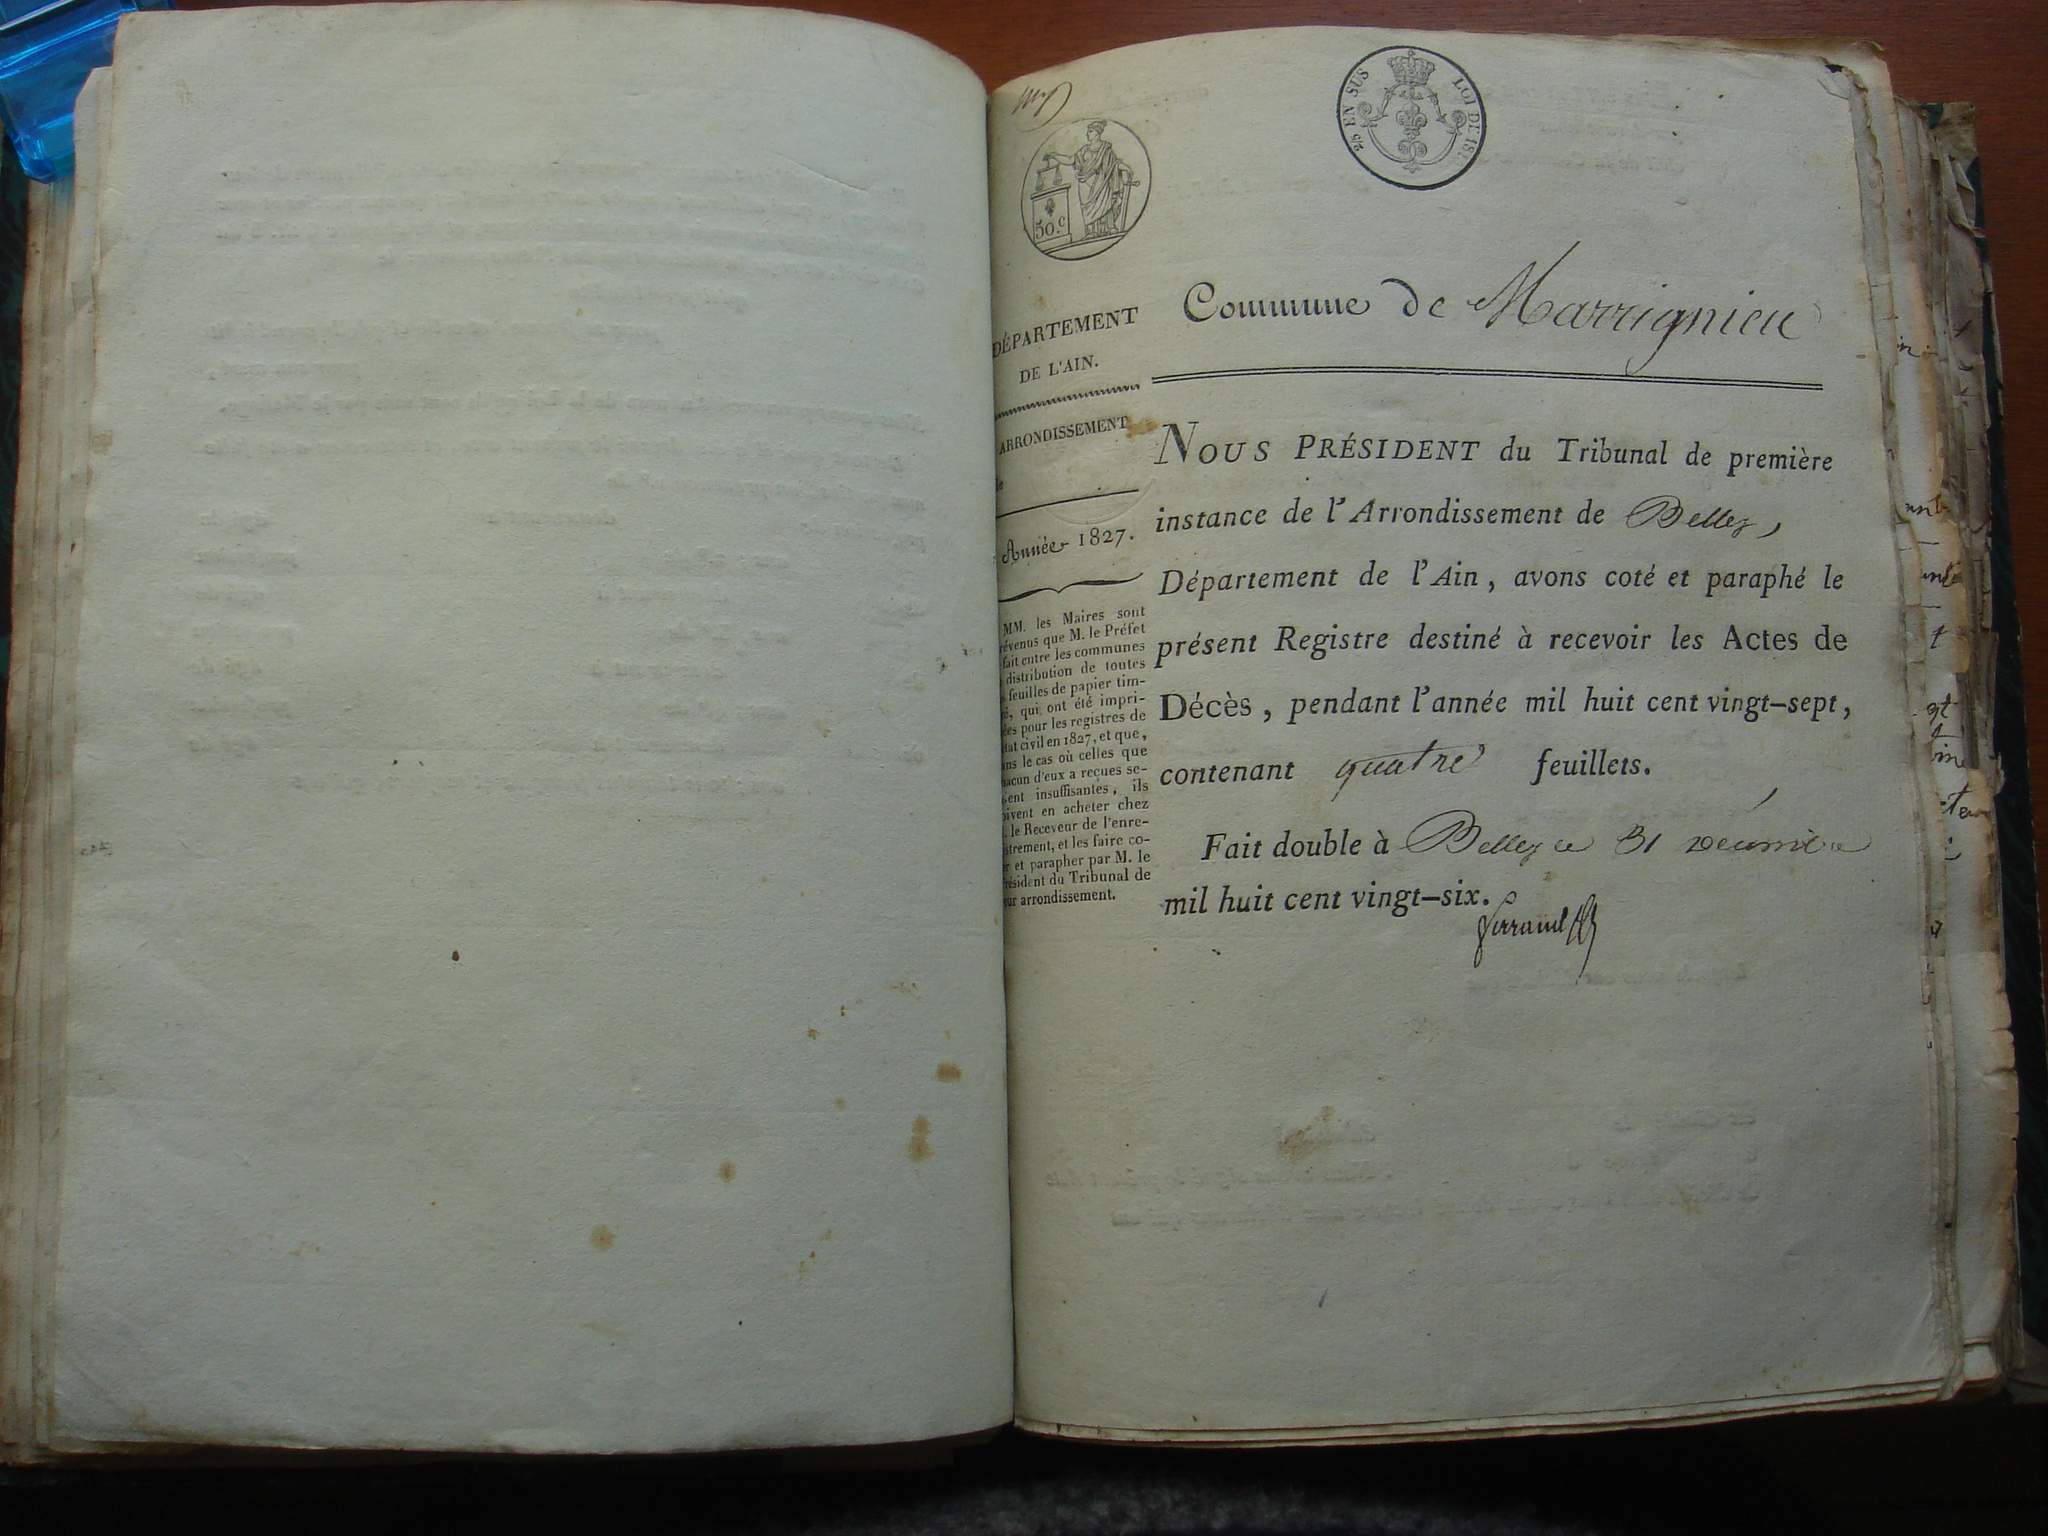 50.c
2/5 EN SUS LOI DE 181
DÉPARTEMENT
DE L'AIN.
ARRONDISSEMENT
Année 1827.
MM. les Maires sont
révenus que M. le Préfet
fait entre les communes
distribution de toutes
feuilles de papier tim-
é, qui ont été impri-
ées pour les registres de
état civil en 1827, et que,
ans le cas où celles que
hacun d'eux a reçues se-
ient insuffisantes, ils
oivent en acheter chez
. le Receveur de l'enre-
istrement, et les faire co-
er et parapher par M. le
résident du Tribunal de
ur arrondissement.
Commune de Marrignieu
NOUS PRÉSIDENT du Tribunal de première
instance de l'Arrondissement de Belley,
Département de l'Ain, avons coté et paraphé le
présent Registre destiné à recevoir les Actes de
Décès, pendant l'année mil huit cent vingt-sept,
contenant quatre feuillets.
Fait double à Belley ce 31 décembre
mil huit cent vingt-six.